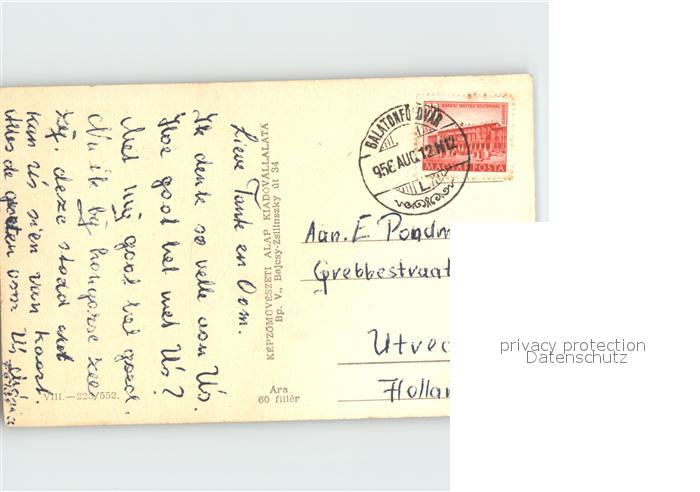 Lieve Tante en Oom.
Ik denk so velle aan Us.
Hoe goot het met Us?
Met mij goot hel goed.
Nu ik bij hongarse zee
Zij. deze stadd
kan Us sien van kaart.
Alles de groeten vom Us
KÉPZŐMŰVÉSZETI ALAP KIADÓVÁLLALATA
Bp. V., Bajcsy-Zsilinszky út 34
VIII.—223/552.
Ára
60 fillér
BALATONFÖLDVÁR
956 AUG. 12 N12
MAGYAR POSTA
Aan. E Pondm
Grebbestraat
Utrec
Hollan
privacy protection
Datenschutz